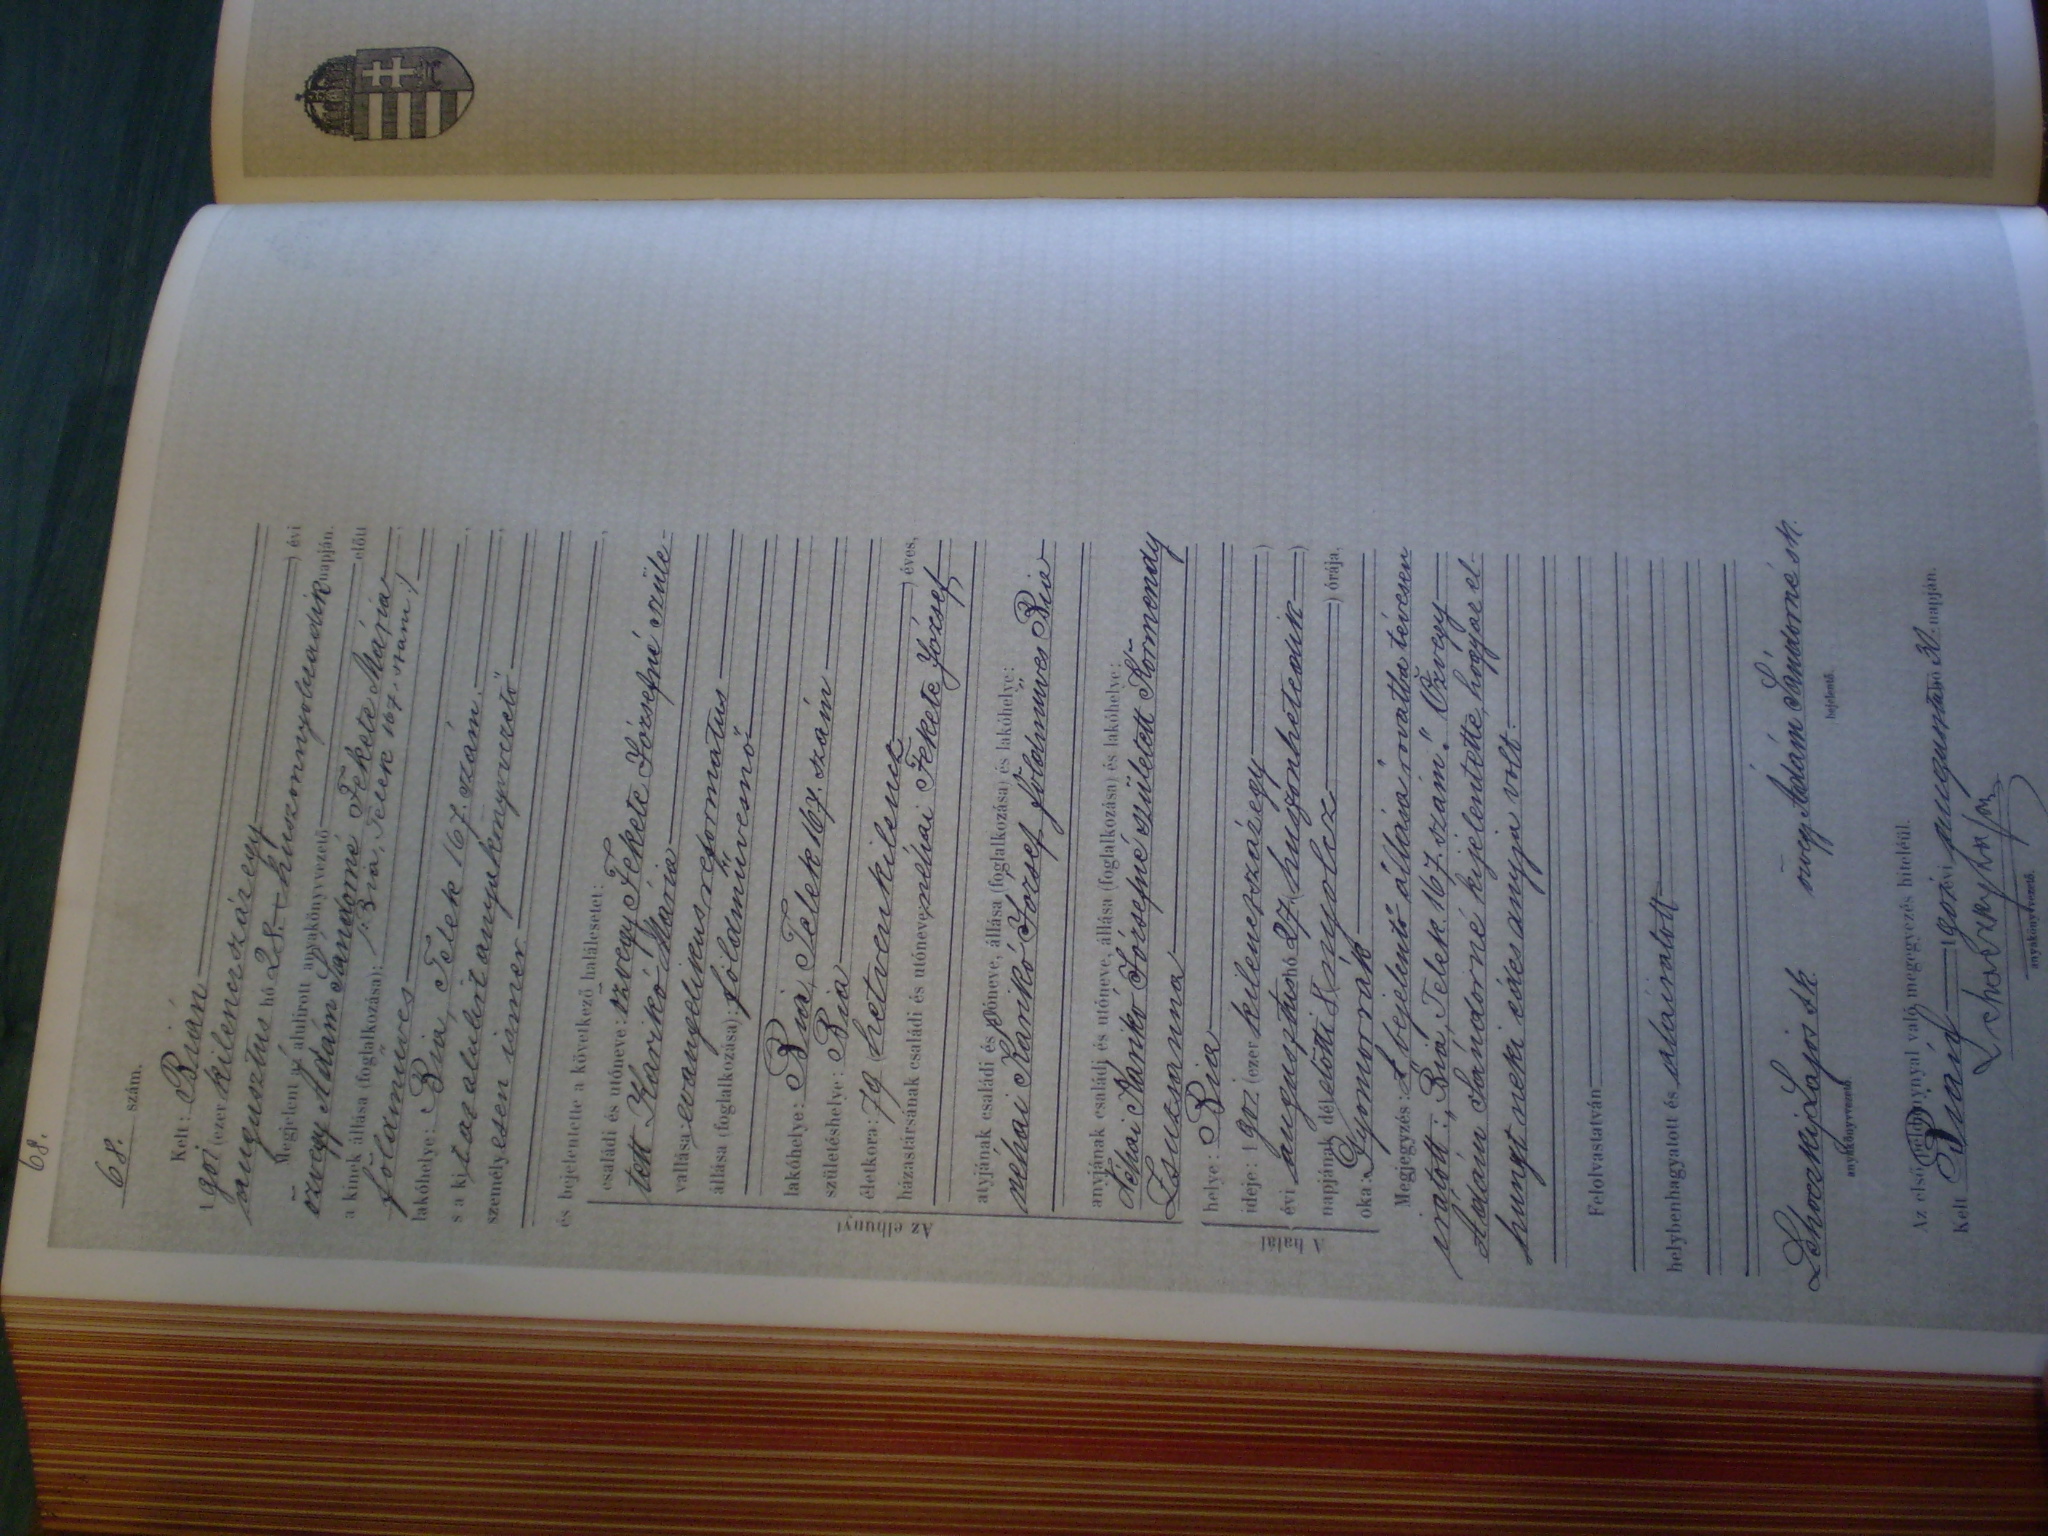 68.
68. szám.
Kelt: Bián
1901 (ezer kilenczszázegy) évi
augusztus hó 28. (huszonnyolczadik napján.
Megjelent az alulirott anyakönyvvezető előtt
özvegy Ádám Sándorné Fekete Mária
a kinek állása (foglalkozása): /:Bia, Telek 167. szám:/
földmüves
lakóhelye: Bia, Telek 167. szám.
s a kit az alulirt anyakönyvvezető
személyesen ismer
és bejelentette a következő halálesetet:
Az elhunyt
családi és utóneve: özvegy Fekete Józsefné szüle-
tett Karikó Mária
vallása: evangelicus reformatus
állása (foglalkozása): földmüvesnő
lakóhelye: Bia, Telek 167. szám
születéshelye: Bia
életkora: 79 (hetvenkilencz) éves,
házastársának családi és utóneve: néhai Fekete József
atyjának családi és utóneve, állása (foglalkozása) és lakóhelye:
néhai Karikó József földmüves Bia
anyjának családi és utóneve, állása (foglalkozása) és lakóhelye:
néhai Karikó Józsefné született Körmendy
Zsuzsanna
A halál
helye: Bia
ideje: 1901. (ezer kilenczszázegy)
évi augusztus hó 27 (huszonhetedik)
napjának dél előtti 8 (nyolcz) órája.
oka: Gyomorrák
Megjegyzés: A bejelentő állása rovatba tévesen
iratott: „Bia, Telek 167. szám." Özvegy
Ádám Sándorné kijelentette, hogy az el-
hunyt neki édesanyja volt.
Felolvastatván
helybenhagyatott és aláiratott
Lehoczki Lajos sk. özvegy Ádám Sándorné sk.
anyakönyvvezető. bejelentő.
Az első példánynyal való megegyezés hiteléül.
Kelt Bián 1901 évi augusztus hó 30. napján.
anyakönyvvezető.